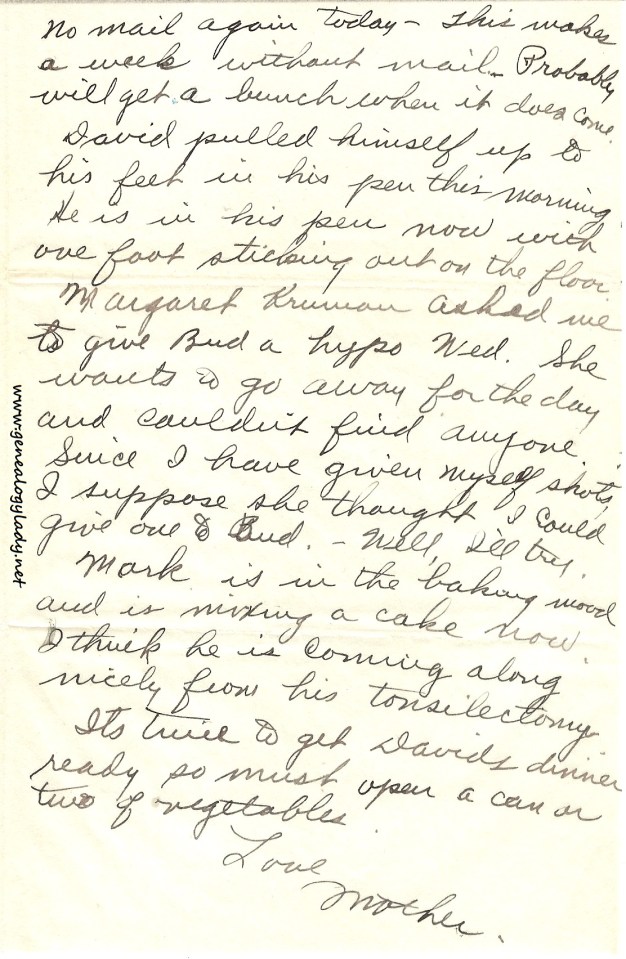 No mail again today – This makes
a week without mail – Probably
will get a bunch when it does come.
David pulled himself up to
his feet in his pen this morning.
He is in his pen now with
one foot sticking out on the floor.
Margaret Kruman asked me
to give Bud a hypo Wed. She
wants to go away for the day
and couldn't find anyone.
Since I have given myself shots,
I suppose she thought I could
give one to Bud. – Well, I'll try.
Mark is in the baking mood
and is mixing a cake now.
I think he is coming along
nicely from his tonsilectomy.
Its time to get Davids dinner
ready so must open a can or
two of vegetables.
Love
Mother.
www.genealogylady.net